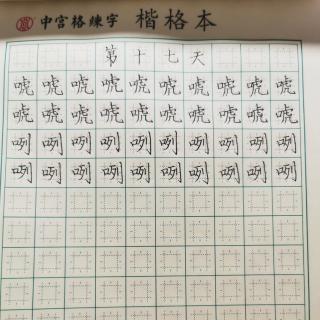 中宫格練字 楷格本
第十七天
唬唬唬唬唬唬唬唬唬唬
唬唬唬唬唬唬唬唬唬唬
咧咧咧咧咧咧咧咧咧咧
咧咧咧咧咧咧咧咧咧咧